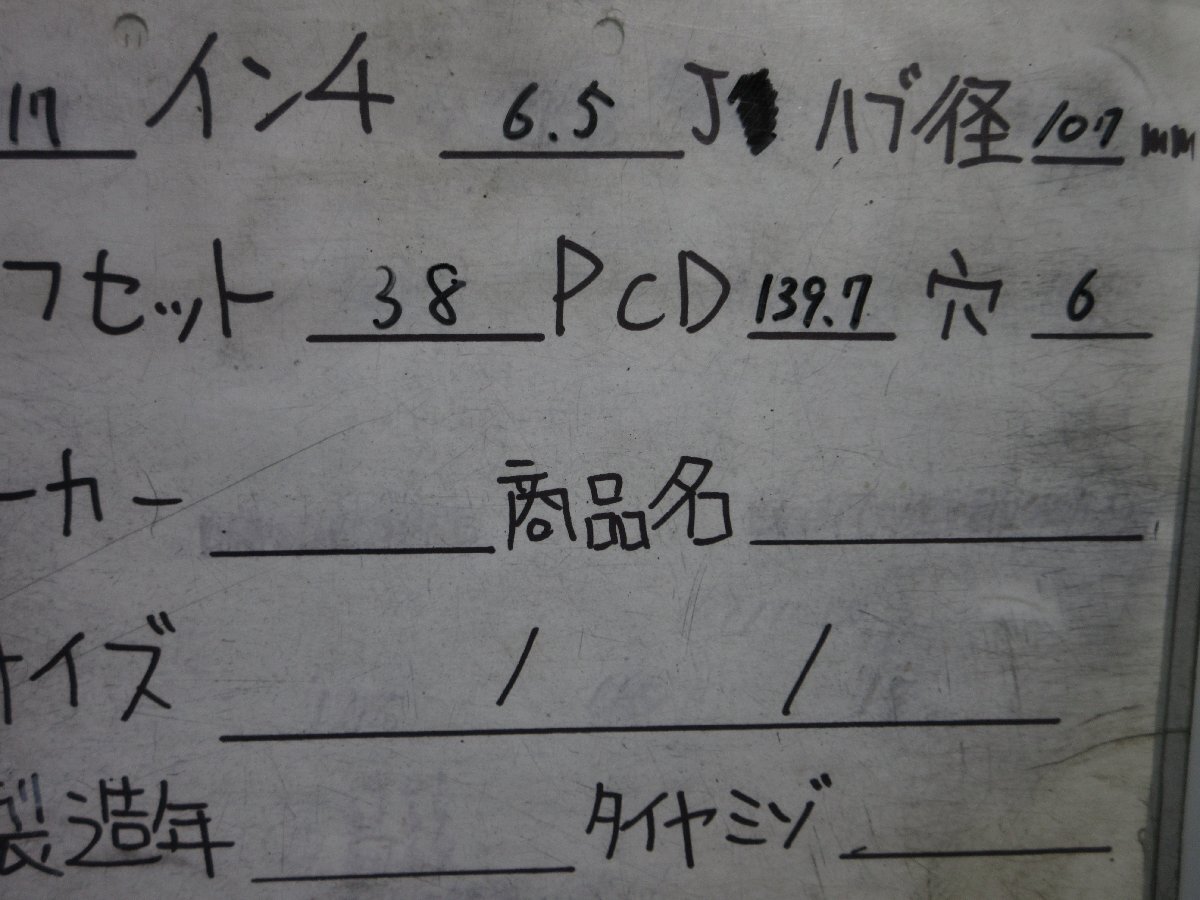 17 インチ 6.5 J ハブ径 107 mm
フセット 38 PCD 139.7 穴 6
ーカー 商品名
イズ / /
製造年 タイヤミゾ